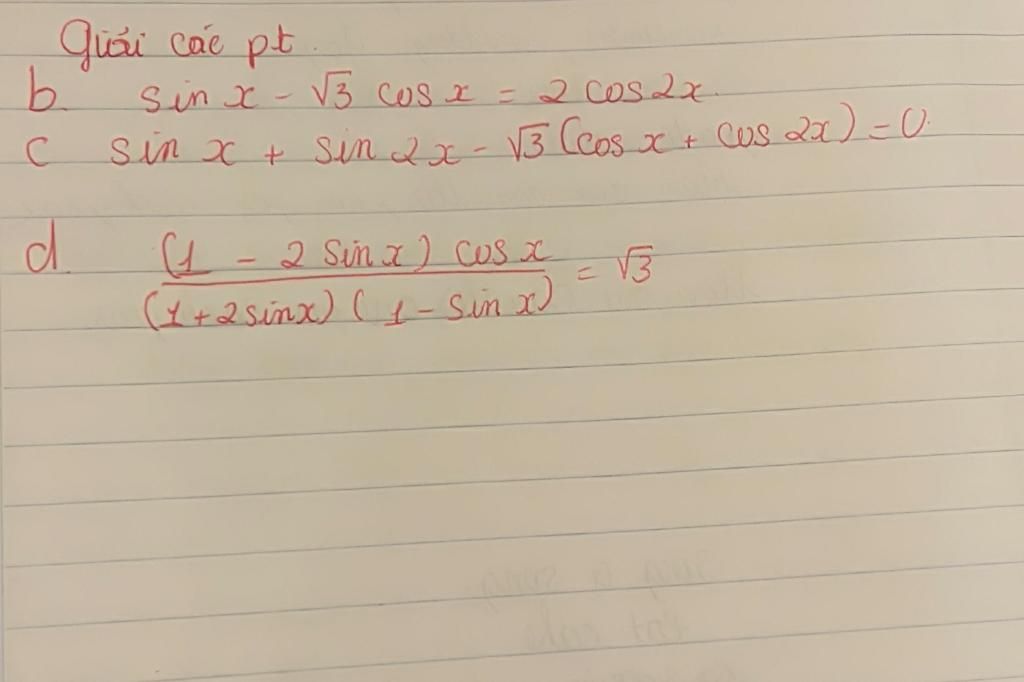 Giải các pt.
b. sin x - √3 cos x = 2 cos 2x.
c sin x + sin 2x - √3 (cos x + cos 2x) = 0.
d. (1 - 2 sin x) cos x
= √3
(1 + 2 sin x) (1 - sin x)